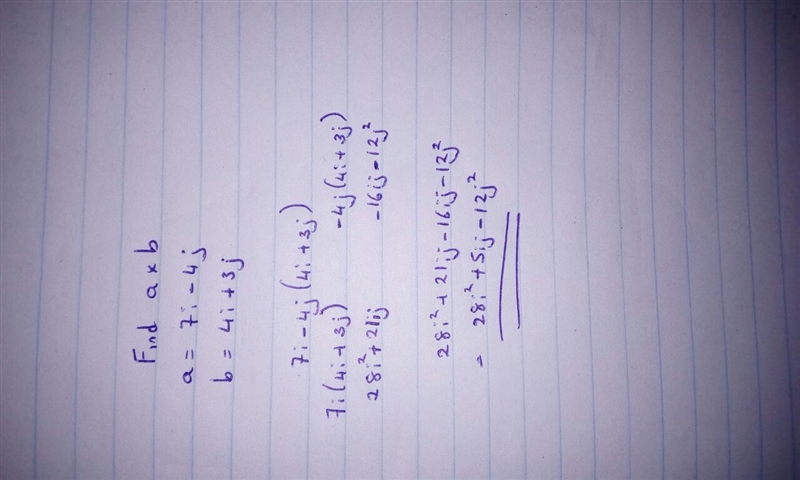 Find a x b
a = 7i - 4j
b = 4i + 3j
7i - 4j (4i + 3j)
7i (4i + 3j) -4j (4i + 3j)
28i² + 21ij -16ij - 12j²
28i² + 21ij - 16ij - 12j²
= 28i² + 5ij - 12j²